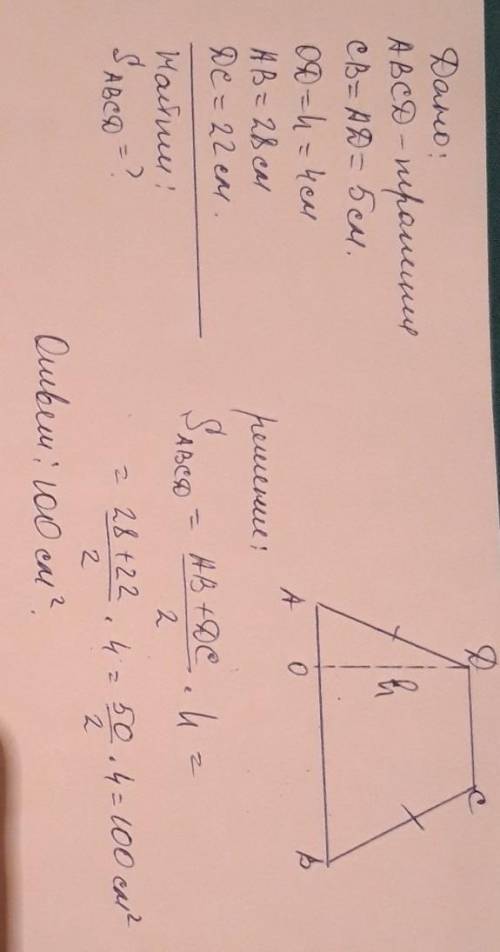 Дано:
ABCD - трапеция
CB = AD = 5 см.
OD = h = 4 см
AB = 28 см
DC = 22 см.
Найти:
S ABCD = ?
решение:
S ABCD = (AB + DC)/2 · h =
= (28 + 22)/2 · 4 = 50/2 · 4 = 100 см²
Ответ: 100 см².
D
C
h
A
O
B